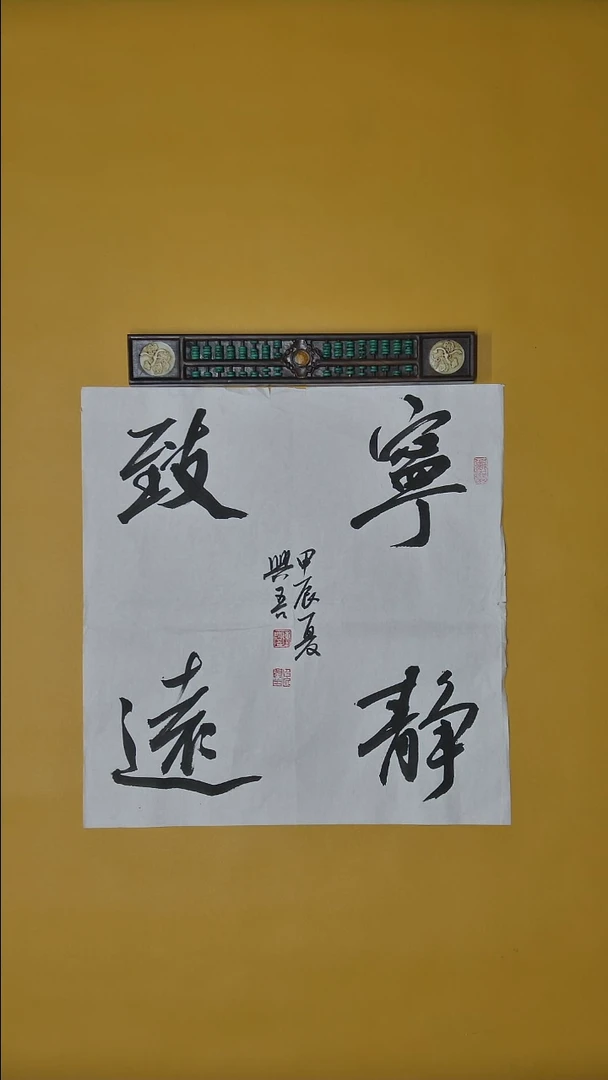 寧靜
致遠
甲辰夏
興吾